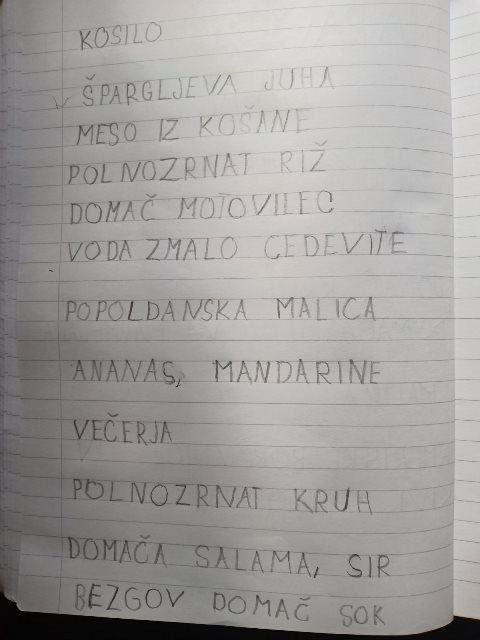 KOSILO
ŠPARGLJEVA JUHA
MESO IZ KOŠANE
POLNOZRNAT RIŽ
DOMAČ MOTOVILEC
VODA ZMALO CEDEVITE
POPOLDANSKA MALICA
ANANAS, MANDARINE
VEČERJA
POLNOZRNAT KRUH
DOMAČA SALAMA, SIR
BEZGOV DOMAČ SOK